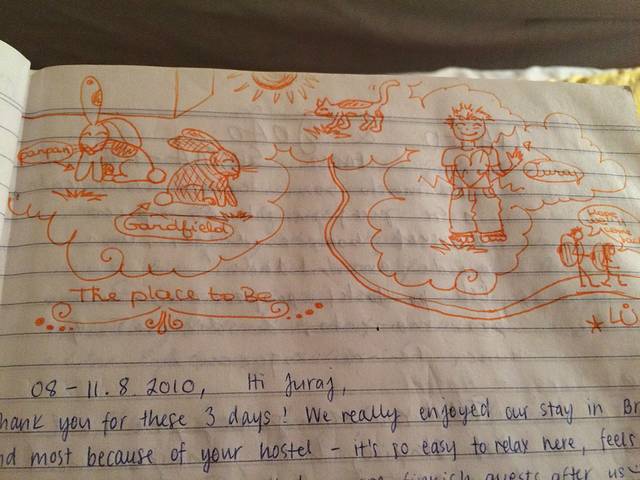 panpan
Gardfield
Juraj
The place to Be
LÜ
08 – 11.8.2010, Hi Juraj,
hank you for these 3 days! We really enjoyed our stay in Br
nd most because of your hostel – it's so easy to relax here, feels
guests after us